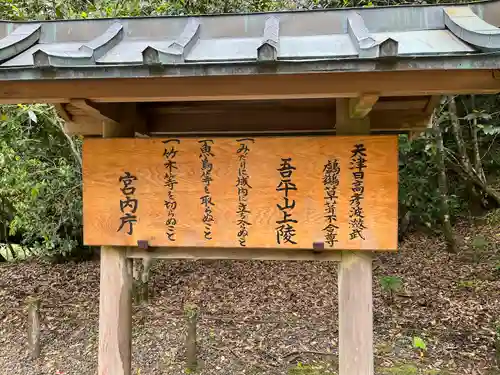 天津日高彦波瀲武
鸕鷀草葺不合尊
吾平山上陵
一、みだりに域内に立ち入らぬこと
一、魚鳥等を取らぬこと
一、竹木等を切らぬこと
宮内庁